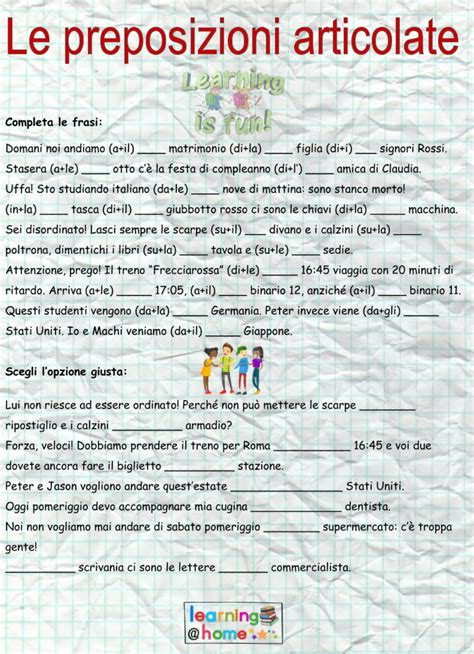 Le preposizioni articolate
Learning
is fun!
Completa le frasi:
Domani noi andiamo (a+il) ____ matrimonio (di+la) ____ figlia (di+i) ___ signori Rossi.
Stasera (a+le) ____ otto c'è la festa di compleanno (di+l') ____ amica di Claudia.
Uffa! Sto studiando italiano (da+le) ____ nove di mattina: sono stanco morto!
(in+la) ____ tasca (di+il) ____ giubbotto rosso ci sono le chiavi (di+la) _____ macchina.
Sei disordinato! Lasci sempre le scarpe (su+il) ___ divano e i calzini (su+la) ____
poltrona, dimentichi i libri (su+la) ____ tavola e (su+le) ____ sedie.
Attenzione, prego! Il treno "Frecciarossa" (di+le) ____ 16:45 viaggia con 20 minuti di
ritardo. Arriva (a+le) _____ 17:05, (a+il) ____ binario 12, anziché (a+il) ____ binario 11.
Questi studenti vengono (da+la) _____ Germania. Peter invece viene (da+gli) _____
Stati Uniti. Io e Machi veniamo (da+il) _____ Giappone.
Scegli l'opzione giusta:
Lui non riesce ad essere ordinato! Perché non può mettere le scarpe ________
ripostiglio e i calzini ________ armadio?
Forza, veloci! Dobbiamo prendere il treno per Roma ________ 16:45 e voi due
dovete ancora fare il biglietto ________ stazione.
Peter e Jason vogliono andare quest'estate ____________ Stati Uniti.
Oggi pomeriggio devo accompagnare mia cugina __________ dentista.
Noi non vogliamo mai andare di sabato pomeriggio ________ supermercato: c'è troppa
gente!
__________ scrivania ci sono le lettere ________ commercialista.
learning
@home